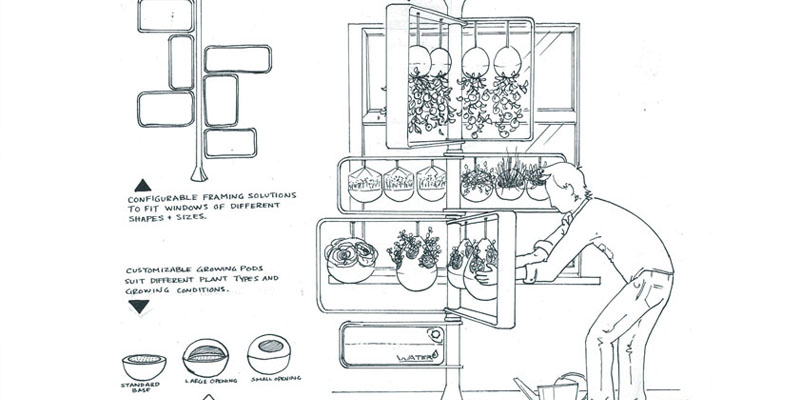 CONFIGURABLE FRAMING SOLUTIONS
TO FIT WINDOWS OF DIFFERENT
SHAPES + SIZES.
CUSTOMIZABLE GROWING PODS
SUIT DIFFERENT PLANT TYPES AND
GROWING CONDITIONS.
STANDARD
BASE
LARGE OPENING
SMALL OPENING
WATER